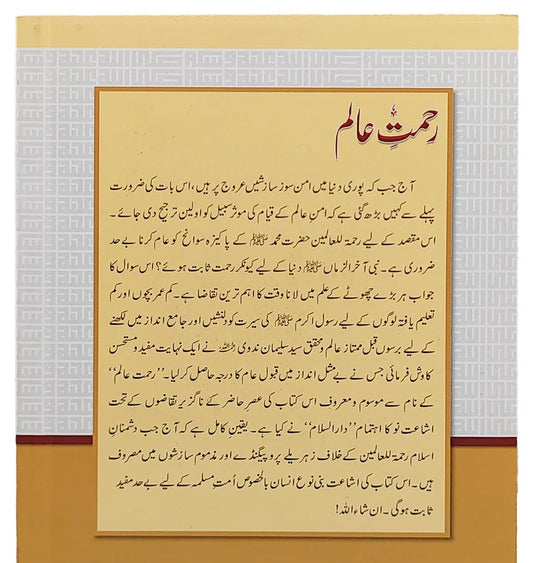 رحمتِ عالم ﷺ
آج جب کہ پوری دنیا میں امن سوز سازشیں عروج پر ہیں، اس بات کی ضرورت
پہلے سے کہیں بڑھ گئی ہے کہ امنِ عالم کے قیام کی موثر سبیل کو اولین ترجیح دی جائے۔
اس مقصد کے لیے رحمۃ للعالمین حضرت محمد ﷺ کے پاکیزہ سوانح کو عام کرنا بے حد
ضروری ہے۔ نبی آخر الزماں ﷺ دنیا کے لیے کیونکر رحمت ثابت ہوئے؟ اس سوال کا
جواب ہر بڑے چھوٹے کے علم میں لانا وقت کا اہم ترین تقاضا ہے۔ کم عمر بچوں اور کم
تعلیم یافتہ لوگوں کے لیے رسول اکرم ﷺ کی سیرت کو دلنشیں اور جامع انداز میں لکھنے
کے لیے برسوں قبل ممتاز عالم و محقق سید سلیمان ندوی رحمہ اللہ نے ایک نہایت مفید و مستحسن
کاوش فرمائی جس نے بے مثل انداز میں قبول عام کا درجہ حاصل کر لیا۔ ’’رحمت عالم‘‘
کے نام سے موسوم و معروف اس کتاب کی عصرِ حاضر کے ناگزیر تقاضوں کے تحت
اشاعت نو کا اہتمام ’’دارالسلام‘‘ نے کیا ہے۔ یقین کامل ہے کہ آج جب دشمنانِ
اسلام رحمۃ للعالمین کے خلاف زہریلے پروپیگنڈے اور مذموم سازشوں میں مصروف
ہیں۔ اس کتاب کی اشاعت بنی نوع انسان بالخصوص اُمتِ مسلمہ کے لیے بے حد مفید
ثابت ہوگی۔ ان شاء اللہ!